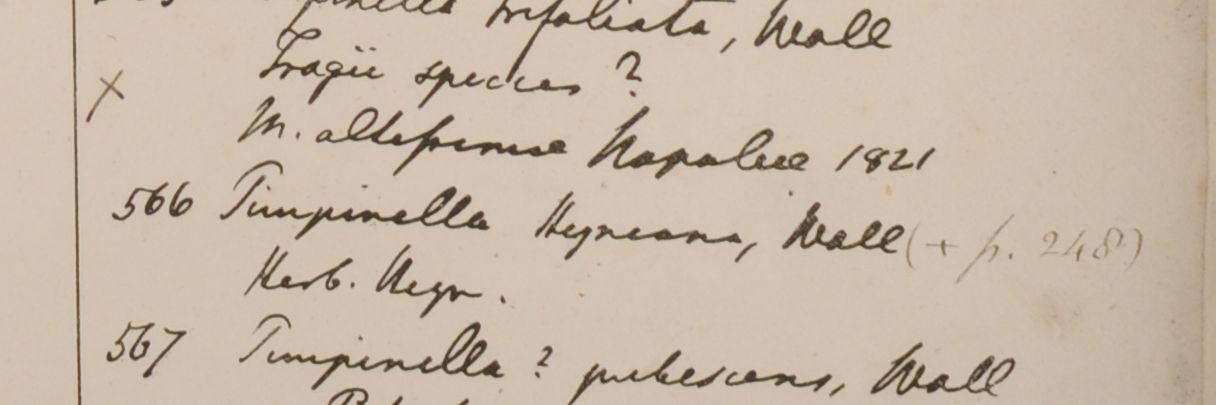 trifoliata, Wall
Tragii species ?
M. altissimae Napaliae 1821
566 Pimpinella Heyneana, Wall (+ p. 248)
Herb. Heyn.
567 Pimpinella ? pubescens, Wall